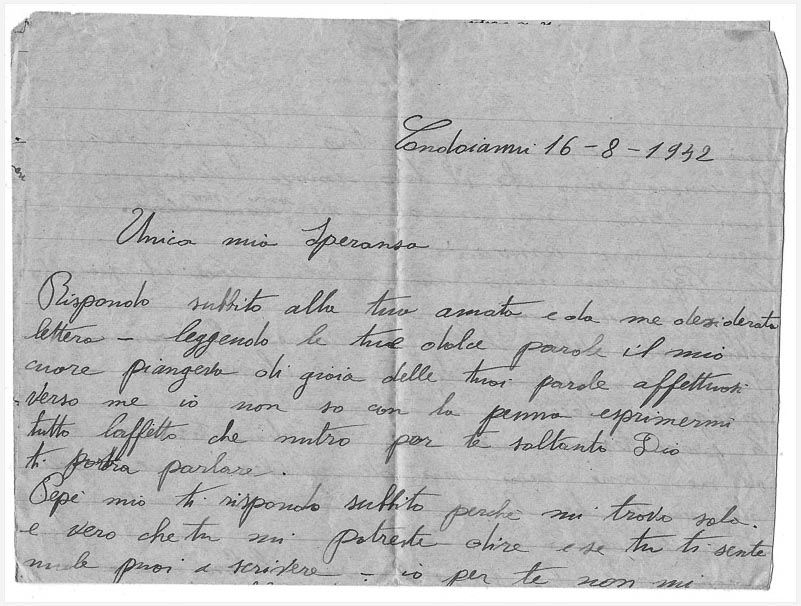 Condoianni 16-8-1942
Unica mia Speransa
Rispondo subbito alla tua amata e da me desiderata
lettera - leggendo le tue dolce parole il mio
cuore piangeva di gioia delle tuoi parole affettuosi
verso me io non so con la penna esprimermi
tutto laffetto che nutro per te soltanto Dio
ti potra parlare.
Pepè mio ti rispondo subbito perche mi trovo sola.
e vero che tu mi potreste dire e se tu ti sente
male puoi a scrivere - io per te non mi